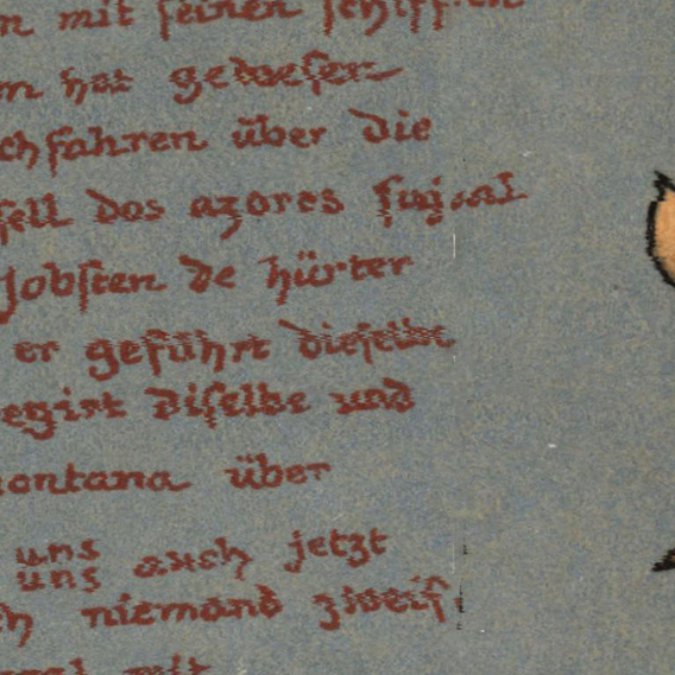 n mit seinen schiffen
m hat gewesen
ch fahren über die
sell dos azores
Jobsten de hürter
er geführt dieselbe
egirt diselbe und
montana über
uns auch jetzt
uns
ch niemand zweif
mit